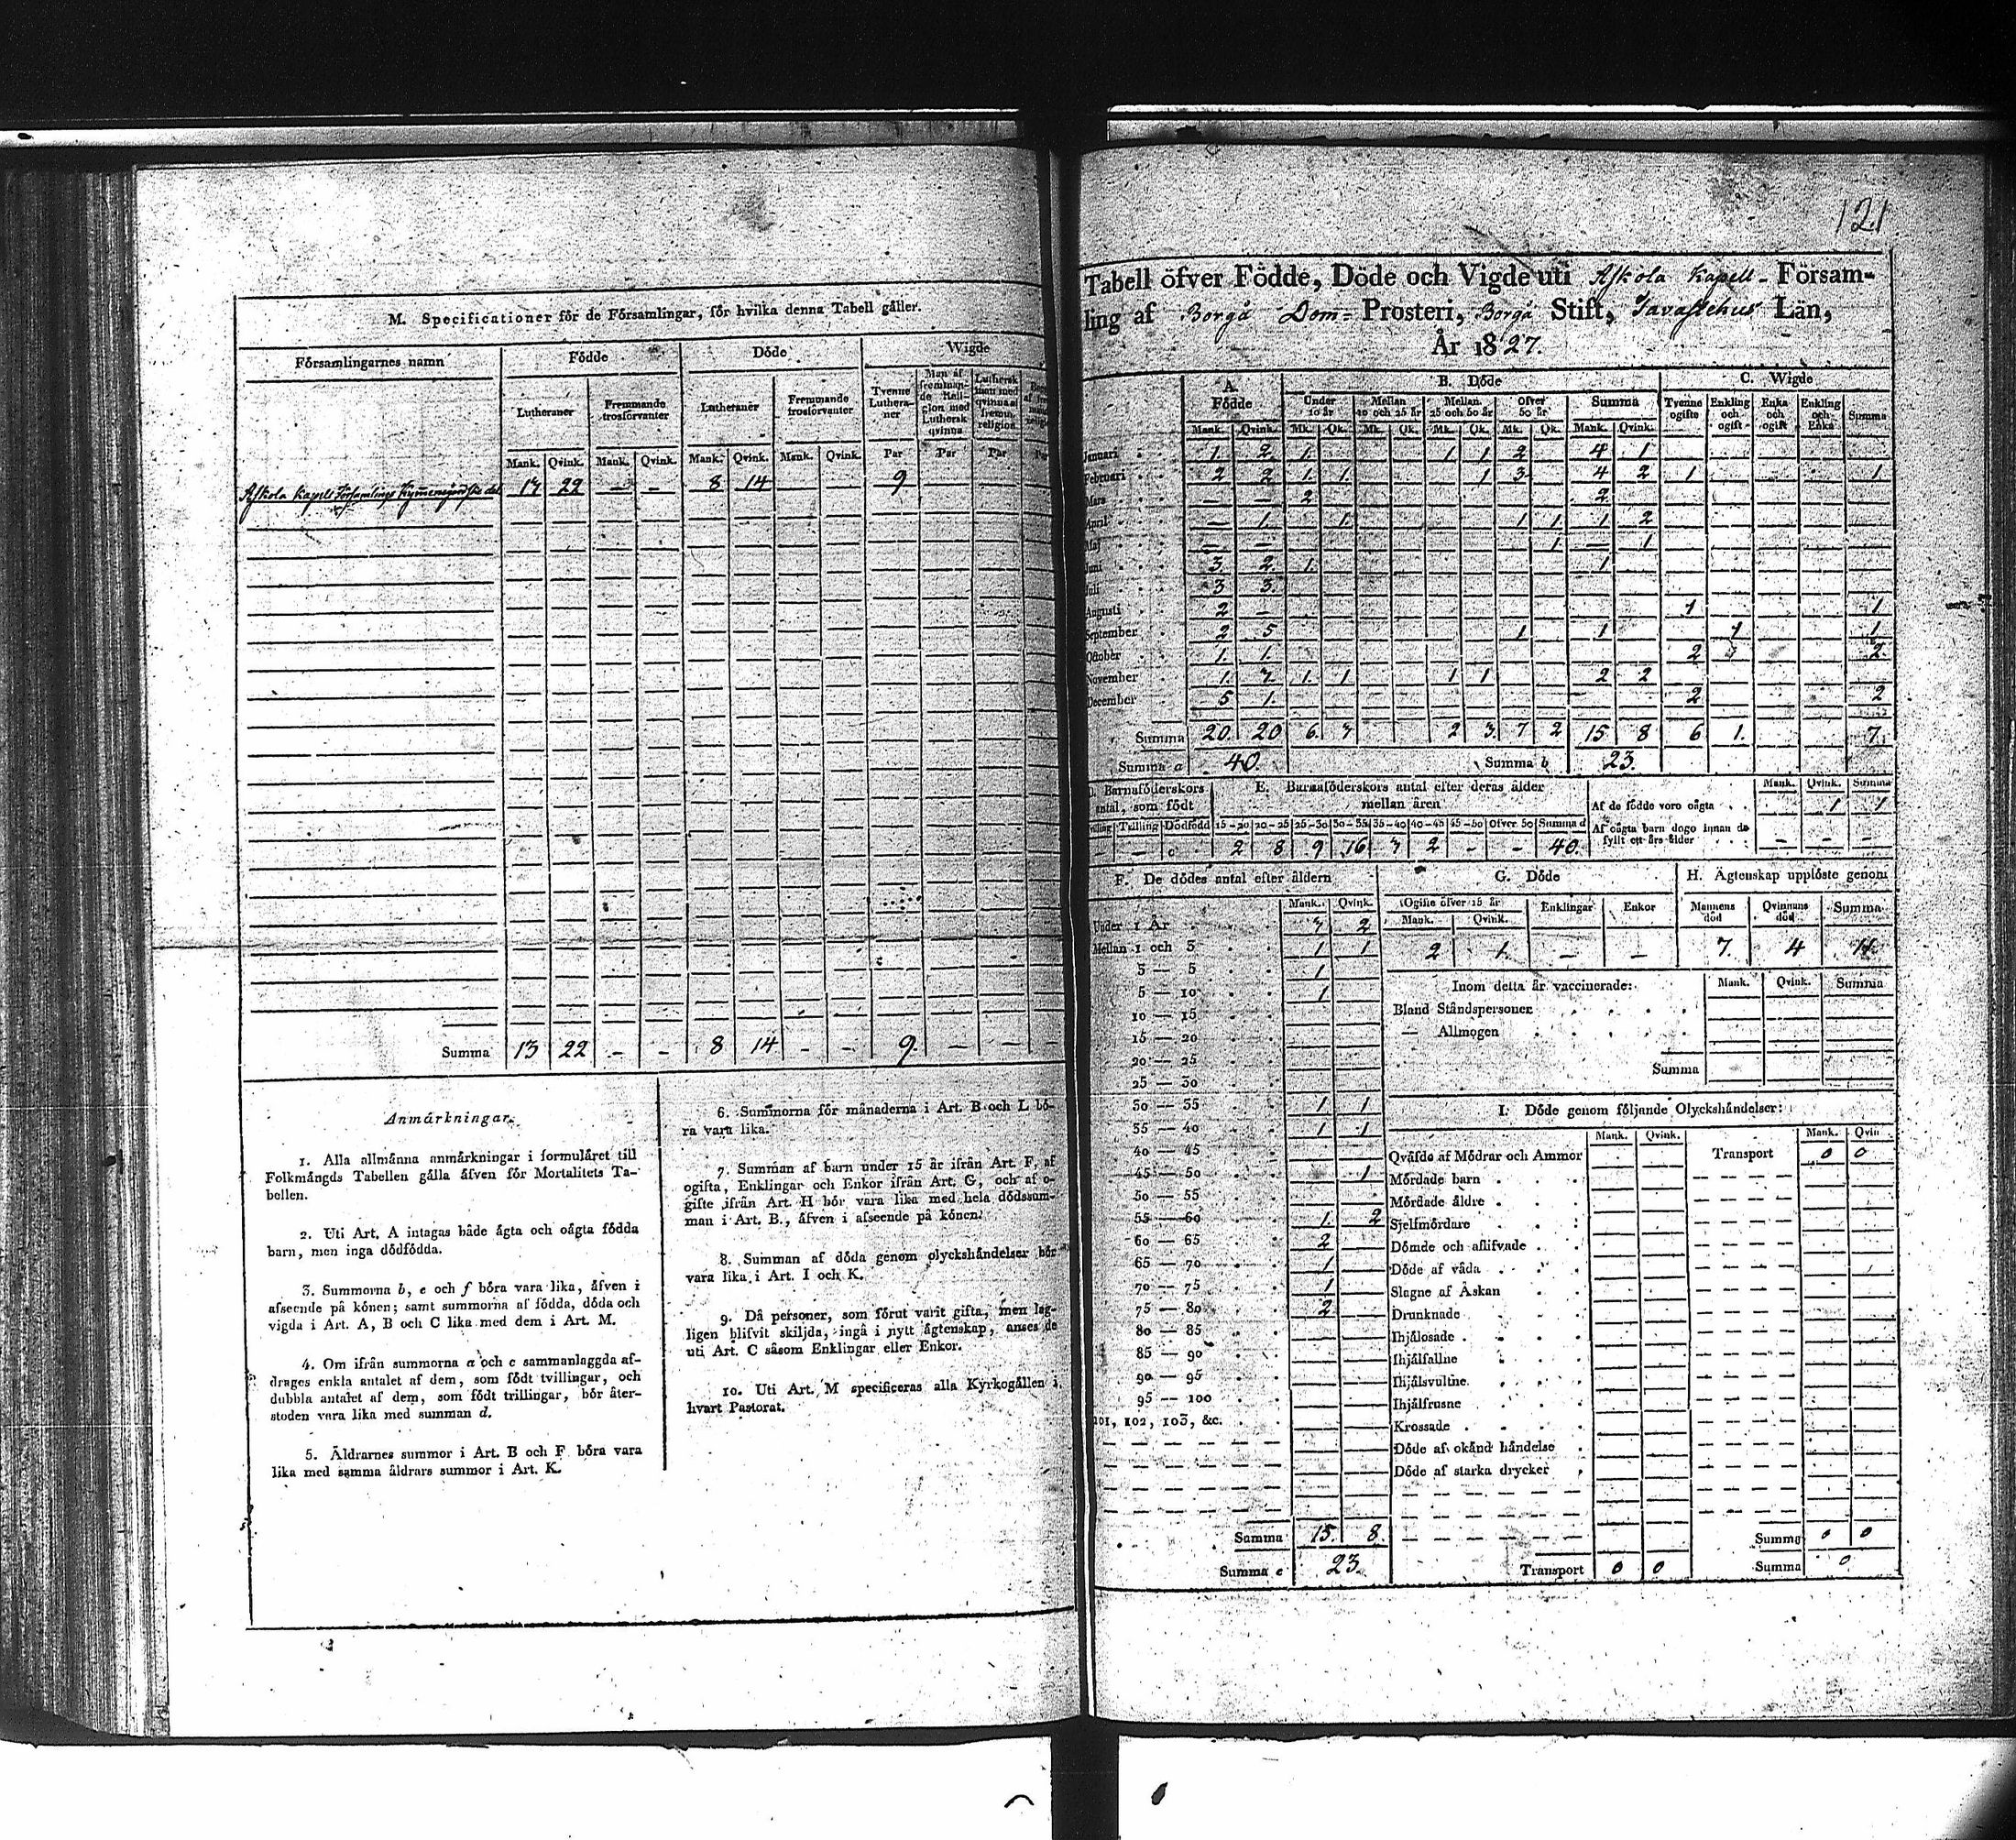 M. Specificationer för de Församlingar, för hvilka denna Tabell gäller.
Församlingarnes namn Födde Döde Wigde
Lutheraner Fremmande trosförvanter Lutheraner Fremmande trosförvanter Tvenne Lutheraner Man af fremmande Religion med Luthersk qvinna Luthersk man med qvinna af fremm. religion
Mank. Qvink. Mank. Qvink. Mank. Qvink. Mank. Qvink. Par Par Par
Askola Kapels Församlings 13 22 — — 8 14 9
Summa 13 22 - - 8 14 - - 9. — — —
Anmärkningar.
1. Alla allmänna anmärkningar i formuläret till
Folkmängds Tabellen gälla äfven för Mortalitets Ta-
bellen.
2. Uti Art. A intagas både ägta och oägta födda
barn, men inga dödfödda.
3. Summorna b, e och f böra vara lika, äfven i
afseende på könen; samt summorna af födda, döda och
vigda i Art. A, B och C lika med dem i Art. M.
4. Om ifrån summorna a och c sammanlaggda af-
drages enkla antalet af dem, som födt tvillingar, och
dubbla antalet af dem, som födt trillingar, bör åter-
stoden vara lika med summan d.
5. Åldrarnes summor i Art. B och F böra vara
lika med samma åldrars summor i Art. K.
6. Summorna för månaderna i Art. B och L bö-
ra vara lika.
7. Summan af barn under 15 år ifrån Art. F, af
ogifta, Enklingar och Enkor ifrån Art. G, och af o-
gifte ifrån Art. H bör vara lika med hela dödssum-
man i Art. B., äfven i afseende på könen.
8. Summan af döda genom olyckshändelser bör
vara lika i Art. I och K.
9. Då personer, som förut varit gifta, men lag-
ligen blifvit skiljda, ingå i nytt ägtenskap, anses de
uti Art. C såsom Enklingar eller Enkor.
10. Uti Art. M specificeras alla Kyrkogällen i
hvart Pastorat.
121
Tabell öfver Födde, Döde och Vigde uti Askola Kapell - Försam-
ling af Borgå Dom- Prosteri, Borgå Stift, Tavastehus Län,
År 1827.
A. Födde B. Döde C. Wigde
Under 10 år Mellan 10 och 25 år Mellan 25 och 50 år Öfver 50 år Summa Tvenne ogifte Enkling och ogift Enka och ogift Enkling och Enka Summa
Mank. Qvink. Mk. Qk. Mk. Qk. Mk. Qk. Mk. Qk. Mank. Qvink.
Januari 1. 2. 1. 1 1 2 4 1
Februari 2 2 1. 1. 1 3 4 2 1 1
Mars — — 2 2
April — 1. 1. 1 1 1 2
Maj — — 1. — 1
Juni 3 2. 1. 1
Juli 3 3.
Augusti 2 — 1 1
September 2 5 1 1 1 1
October 1. 1. 2 2.
November 1. 1. 1. 1 1 2 2
December 5 1. 2 2
Summa 20. 20 6. 3 2 3. 7 2 15 8 6 1. 7.
Summa a 40. Summa b 23.
D. Barnaföderskors antal, som födt E. Barnaföderskors antal efter deras ålder mellan åren Mank. Qvink. Summa
Af de födde voro oägta 1 1
Trilling Dödfödd 15-20 20-25 25-30 30-35 35-40 40-45 45-50 Öfver 50 Summa d Af oägta barn dogo innan de fyllt ett års ålder — — —
— — c 2 8 9 16 3 2 - - 40.
F. De dödes antal efter åldern G. Döde H. Ägtenskap upplöste genom
Mank. Qvink. Ogifte öfver 15 år Enklingar Enkor Mannens död Qvinnans död Summa
Mank. Qvink.
2 1. — — 7. 4 11.
Under 1 År 3 2
Mellan 1 och 3 1 1
3 — 5 1
5 — 10 1
10 — 15
15 — 20
20 — 25
25 — 30
30 — 35 1 1
35 — 40 1 1
40 — 45
45 — 50 1
50 — 55
55 — 60 1. 2
60 — 65 2
65 — 70 1
70 — 75 1
75 — 80 2
80 — 85
85 — 90
90 — 95
95 — 100
101, 102, 103, &c.
Summa 15. 8.
Summa e 23.
Inom detta år vaccinerade: Mank. Qvink. Summa
Bland Ståndspersoner
— Allmogen
Summa
I. Döde genom följande Olyckshändelser:
Mank. Qvink. Mank. Qvin
Qväfde af Mödrar och Ammor Transport 0 0
Mördade barn
Mördade äldre
Sjelfmördare
Dömde och aflifvade
Döde af våda
Slagne af Åskan
Drunknade
Ihjälosade
Ihjälfallne
Ihjälsvultne
Ihjälfrusne
Krossade
Döde af okänd händelse
Döde af starka drycker
Summa 0 0
Transport 0 0 Summa 0